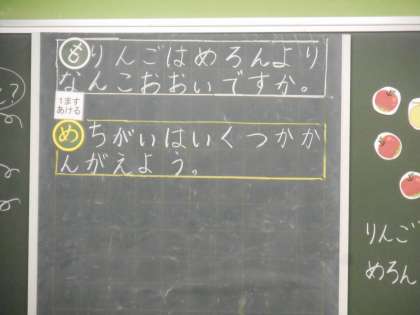 も りんごはめろんより
なんこおおいですか。
1ます
あける
め ちがいはいくつかか
んがえよう。
りんご
めろん